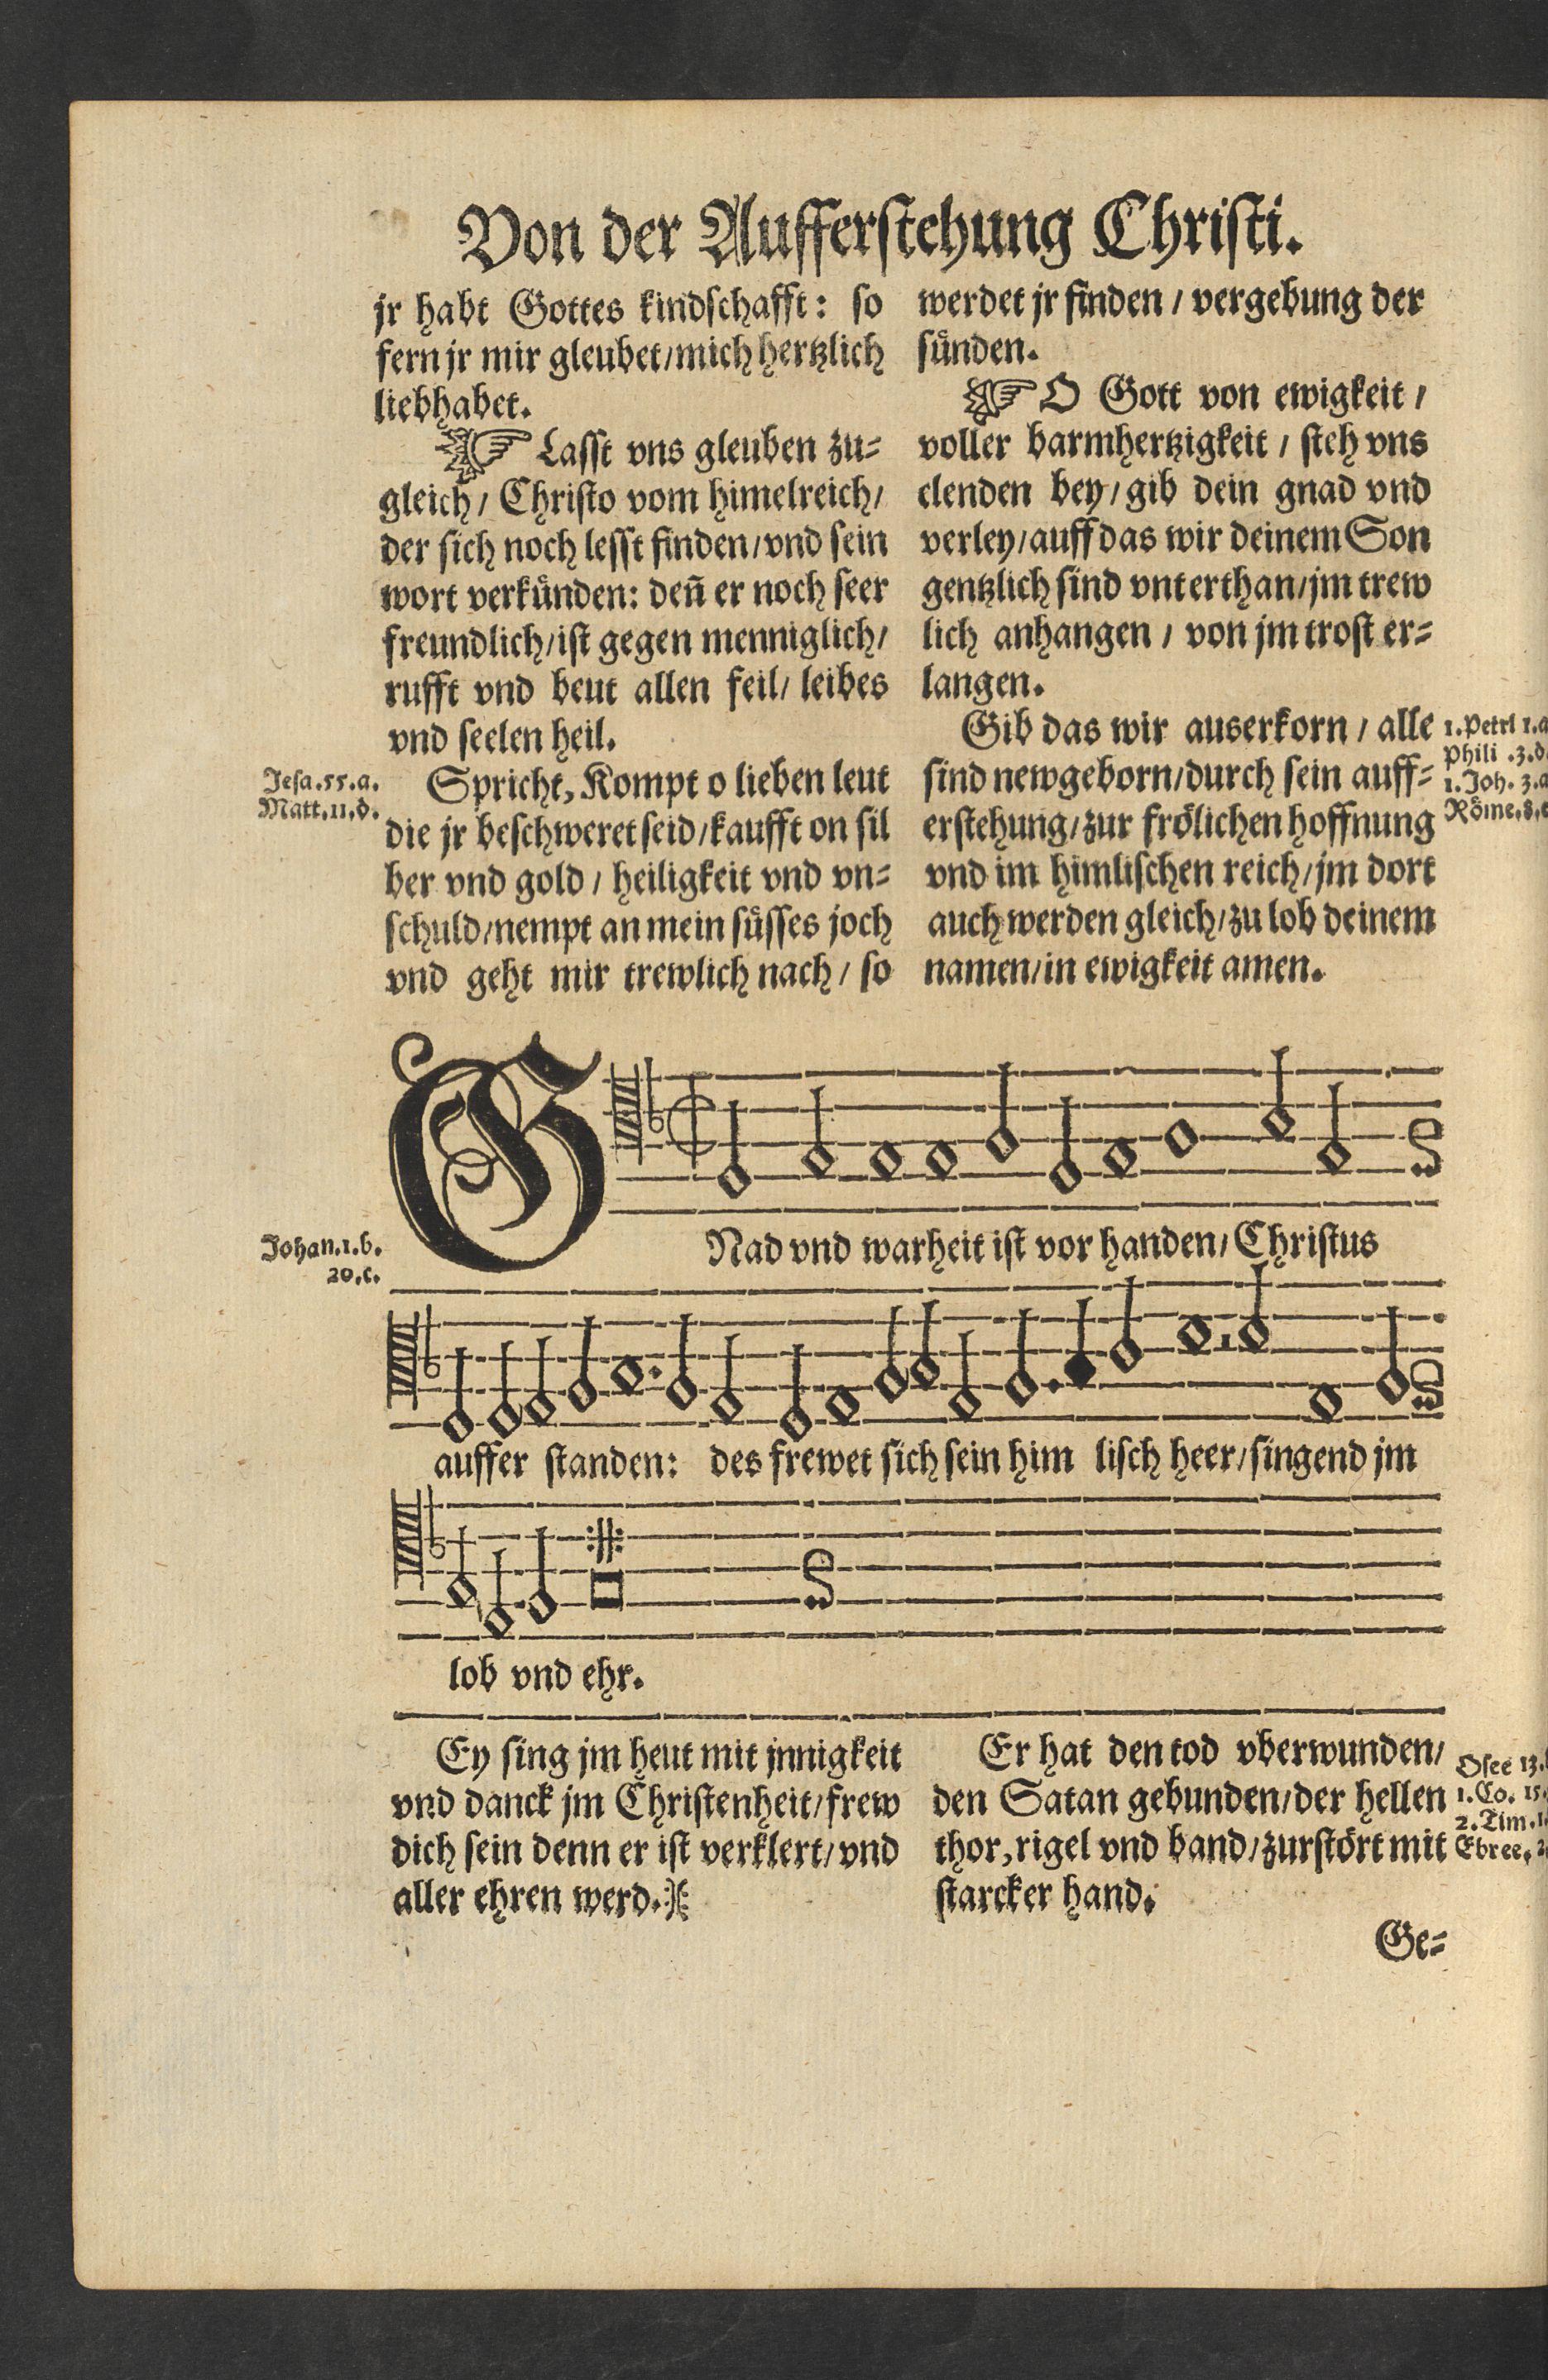 Von der Aufferstehung Christi.
jr habt Gottes kindschafft: so
fern jr mir gleubet/mich hertzlich
liebhabet.
Lasst vns gleuben zu=
gleich/ Christo vom himelreich/
der sich noch lesst finden/vnd sein
wort verkünden: deñ er noch seer
freundlich/ist gegen menniglich/
rufft vnd beut allen feil/ leibes
vnd seelen heil.
Jesa.55.a.
Matt.11.d.
Spricht, Kompt o lieben leut
die jr beschweret seid/kaufft on sil
ber vnd gold / heiligkeit vnd vn=
schuld/nempt an mein süsses joch
vnd geht mir trewlich nach/ so
werdet jr finden / vergebung der
sünden.
O Gott von ewigkeit /
voller barmhertzigkeit / steh vns
elenden bey/ gib dein gnad vnd
verley/auff das wir deinem Son
gentzlich sind vnterthan/jm trew
lich anhangen / von jm trost er=
langen.
Gib das wir auserkorn / alle
sind newgeborn/durch sein auff=
erstehung/zur frölichen hoffnung
vnd im himlischen reich/jm dort
auch werden gleich/zu lob deinem
namen/in ewigkeit amen.
1.Petri 1.a
Phili .3.d.
1.Joh. 3.a
Röme.8.
G
Nad vnd warheit ist vor handen/ Christus
Johan.1.b.
20.c.
auffer standen: des frewet sich sein him lisch heer/singend jm
lob vnd ehr.
Ey sing jm heut mit jnnigkeit
vnd danck jm Christenheit/frew
dich sein denn er ist verklert/vnd
aller ehren werd.
Er hat den tod vberwunden/
den Satan gebunden/der hellen
thor, rigel vnd band/zurstört mit
starcker hand.
Osee 13.
1. Co. 15.
2. Tim.1.
Ebree. 2.
Ge=